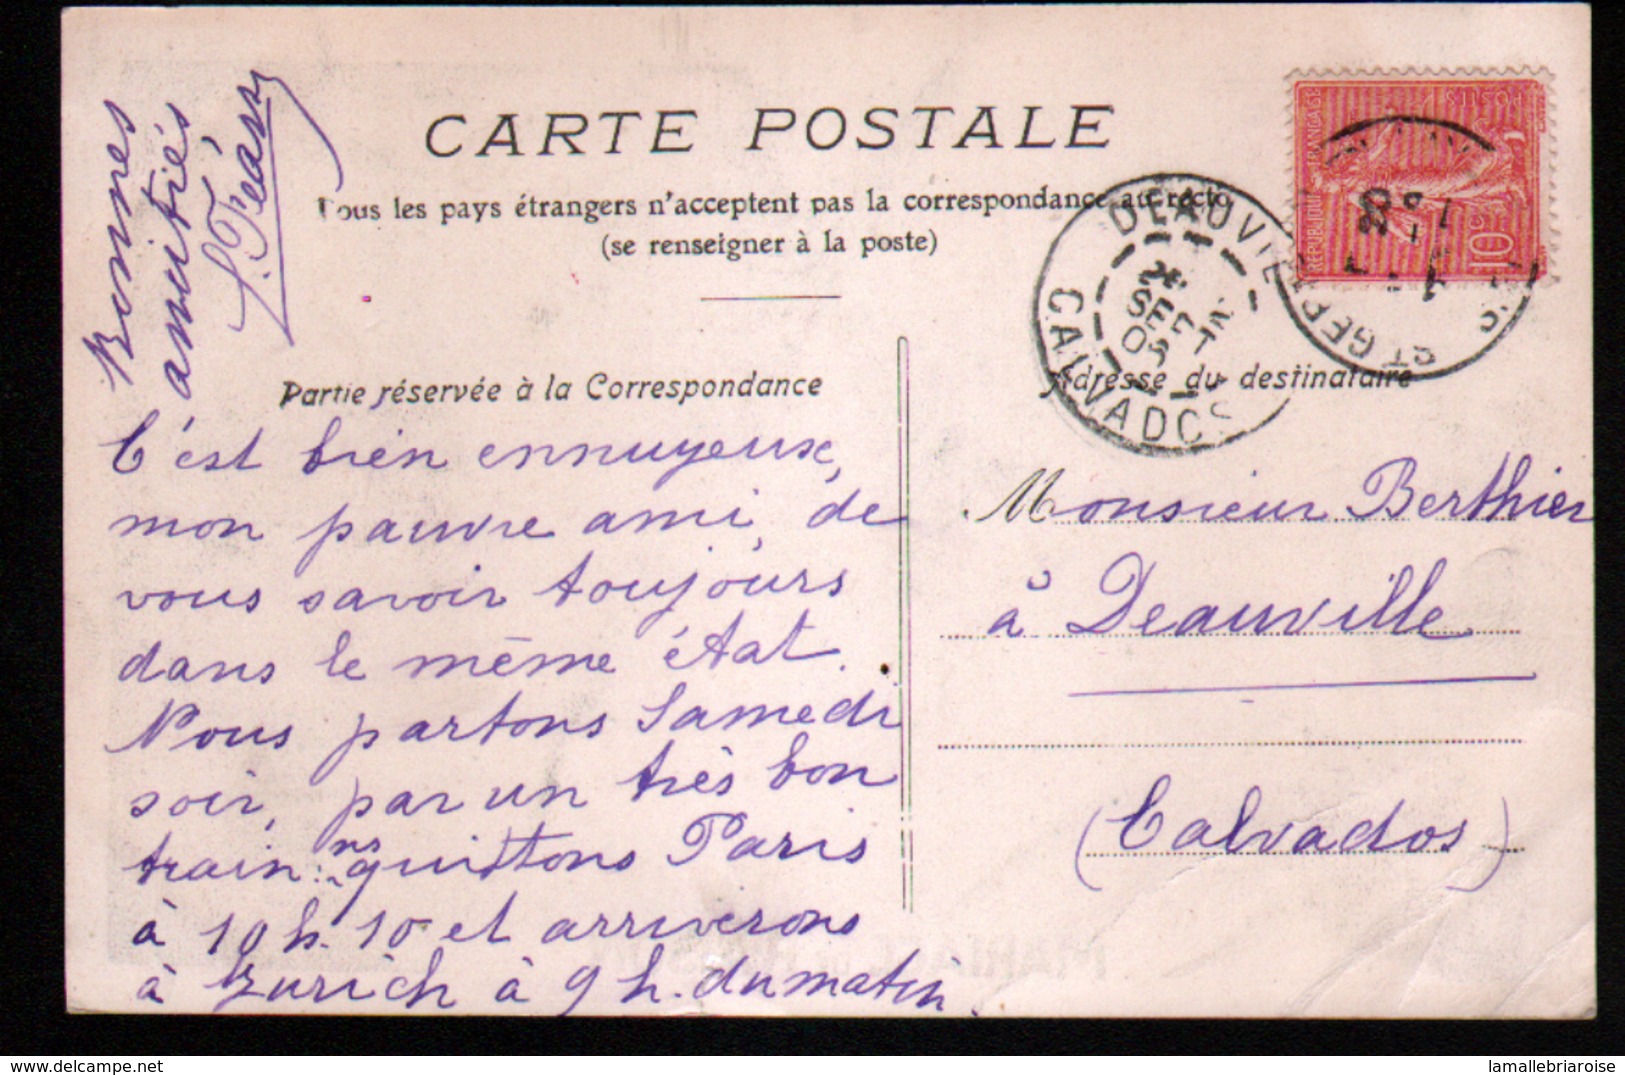 CARTE POSTALE
Tous les pays étrangers n'acceptent pas la correspondance au recto
(se renseigner à la poste)
Partie réservée à la Correspondance
Adresse du destinataire
C'est bien ennuyeux,
mon pauvre ami, de
vous savoir toujours
dans le même état.
Nous partons Samedi
soir, par un très bon
train : ns quittons Paris
à 10 h. 10 et arriverons
à Zurich à 9 h. du matin.
Bonnes
amitiés,
Monsieur Berthier
à Deauville
(Calvados)
DEAUVILLE
CALVADOS
SEPT
REPUBLIQUE FRANÇAISE
POSTES
10c
ST GER
lamallebriaroise